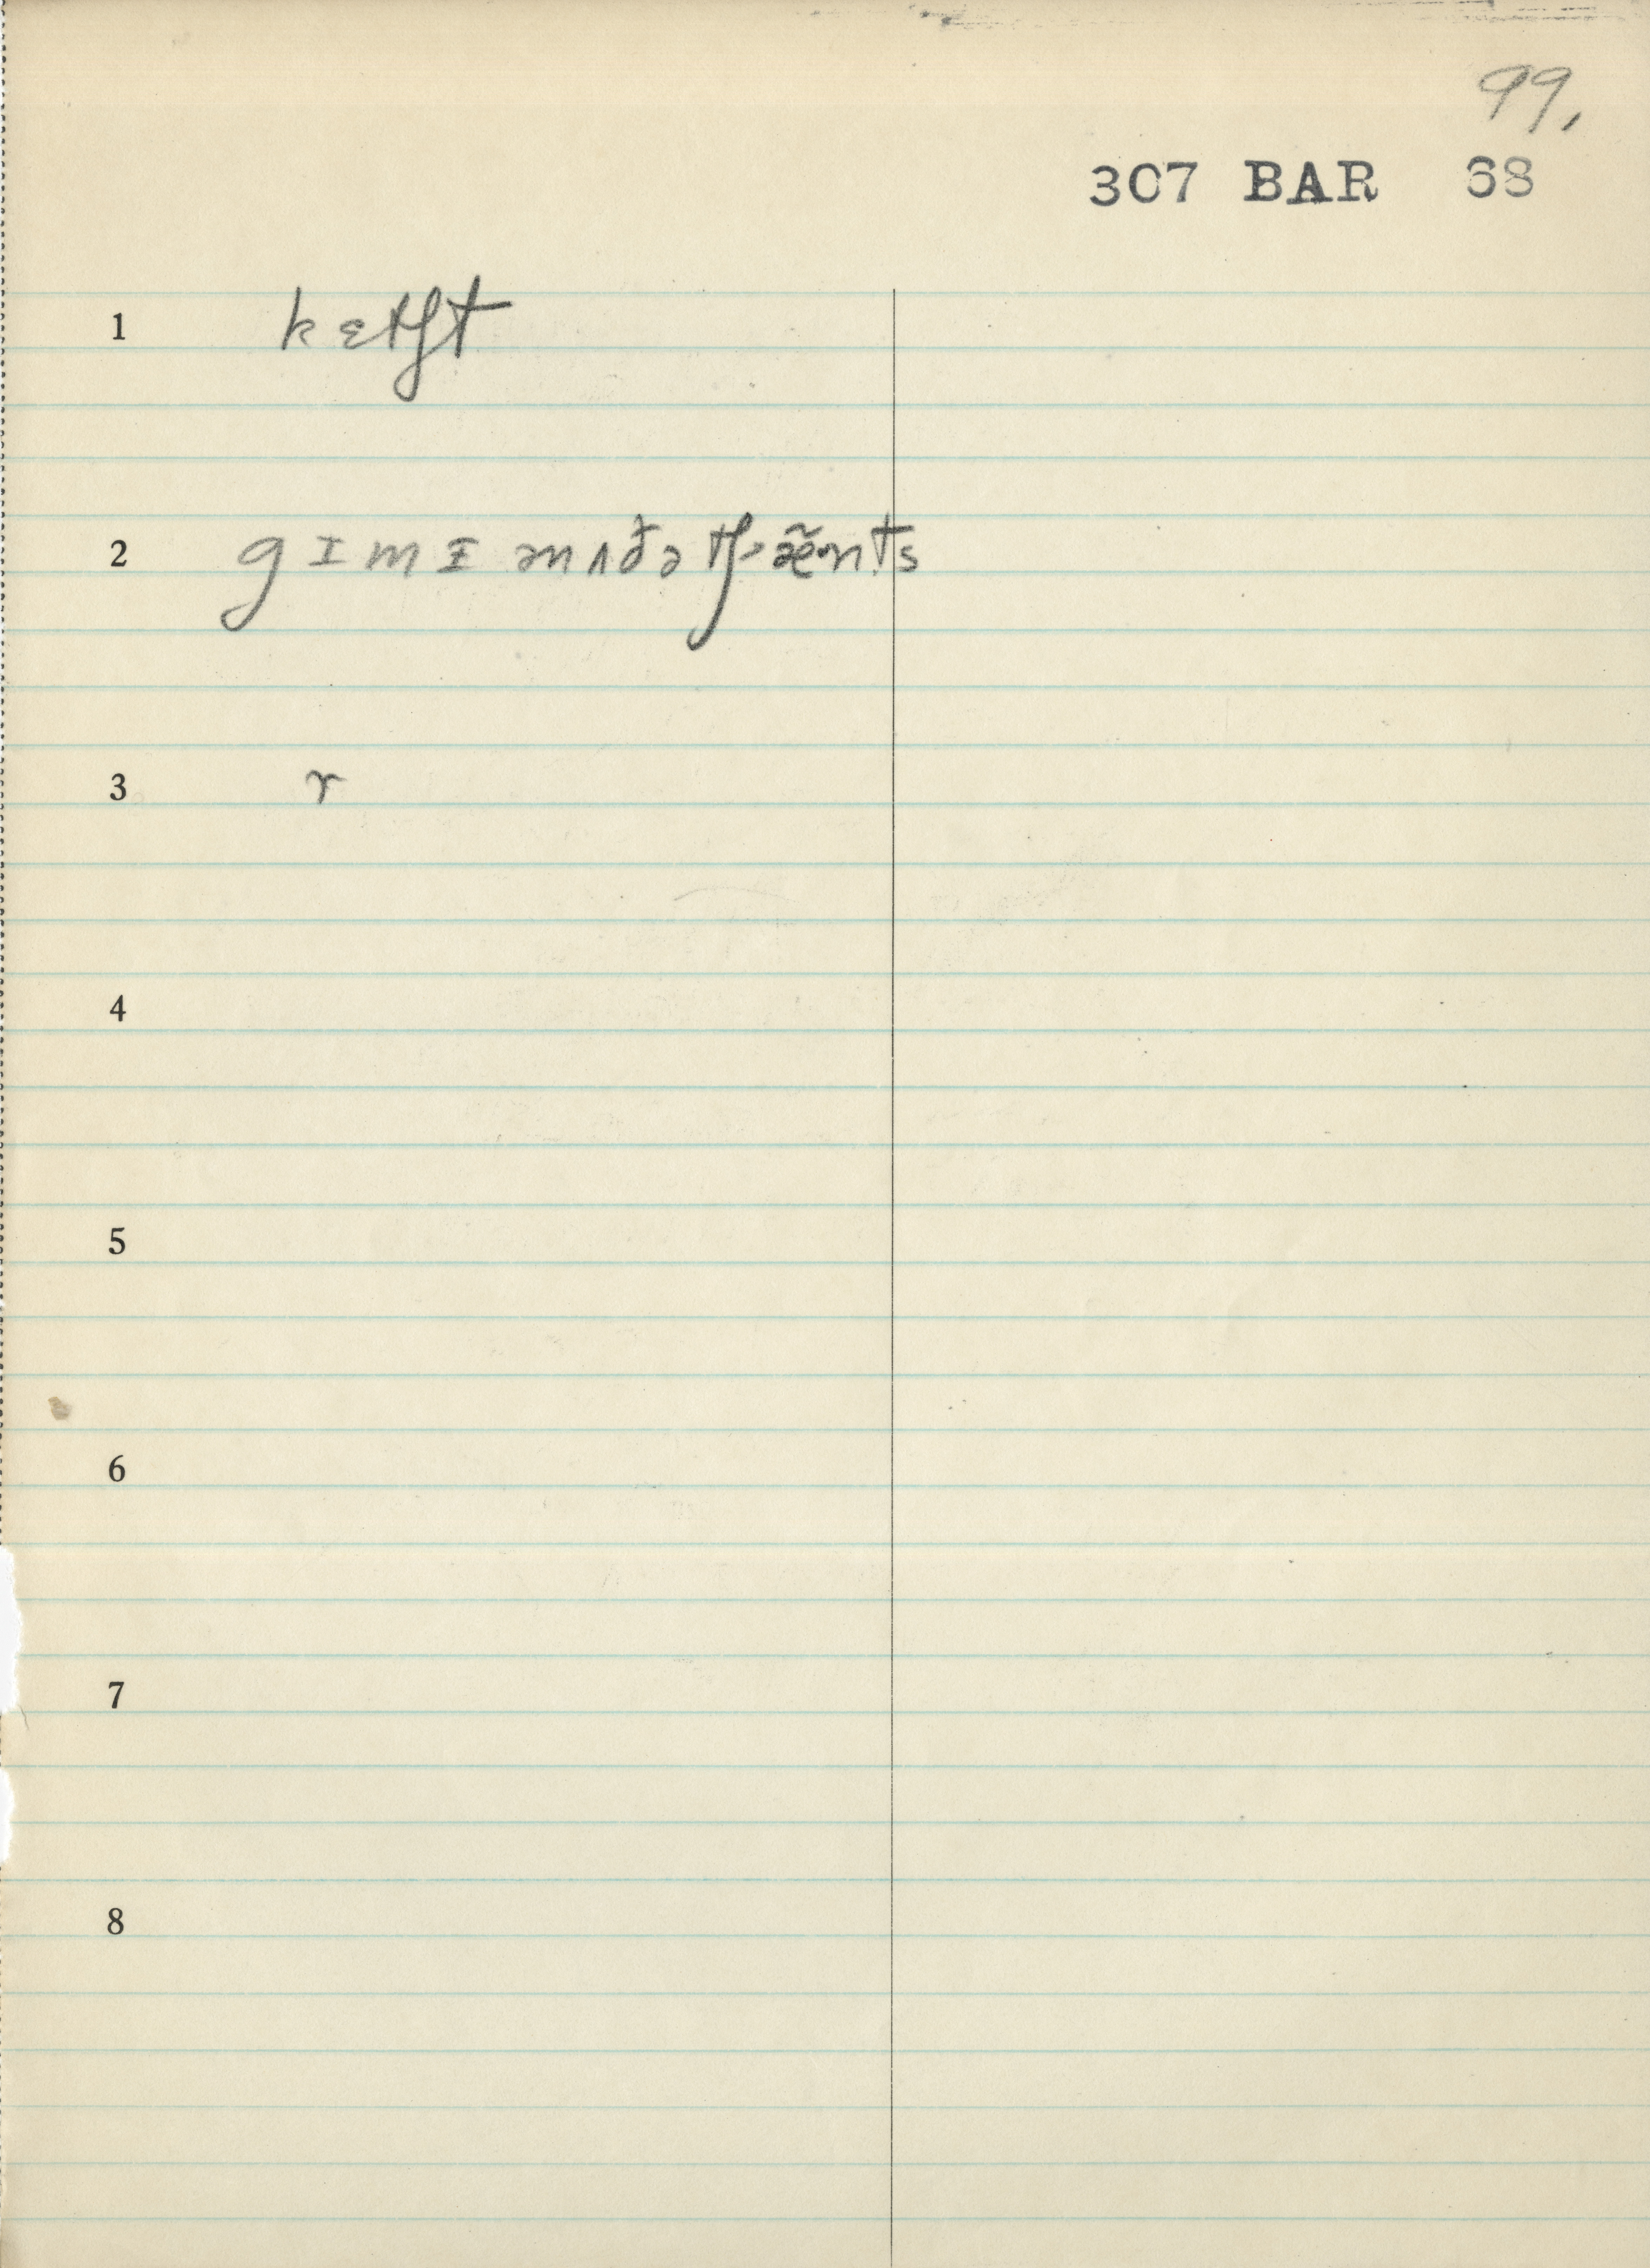 99.
307 BAR 68
1 kɛtʃt
2 gɪmɪ ənʌðə tʃæ̃·nts
3 r
4
5
6
7
8